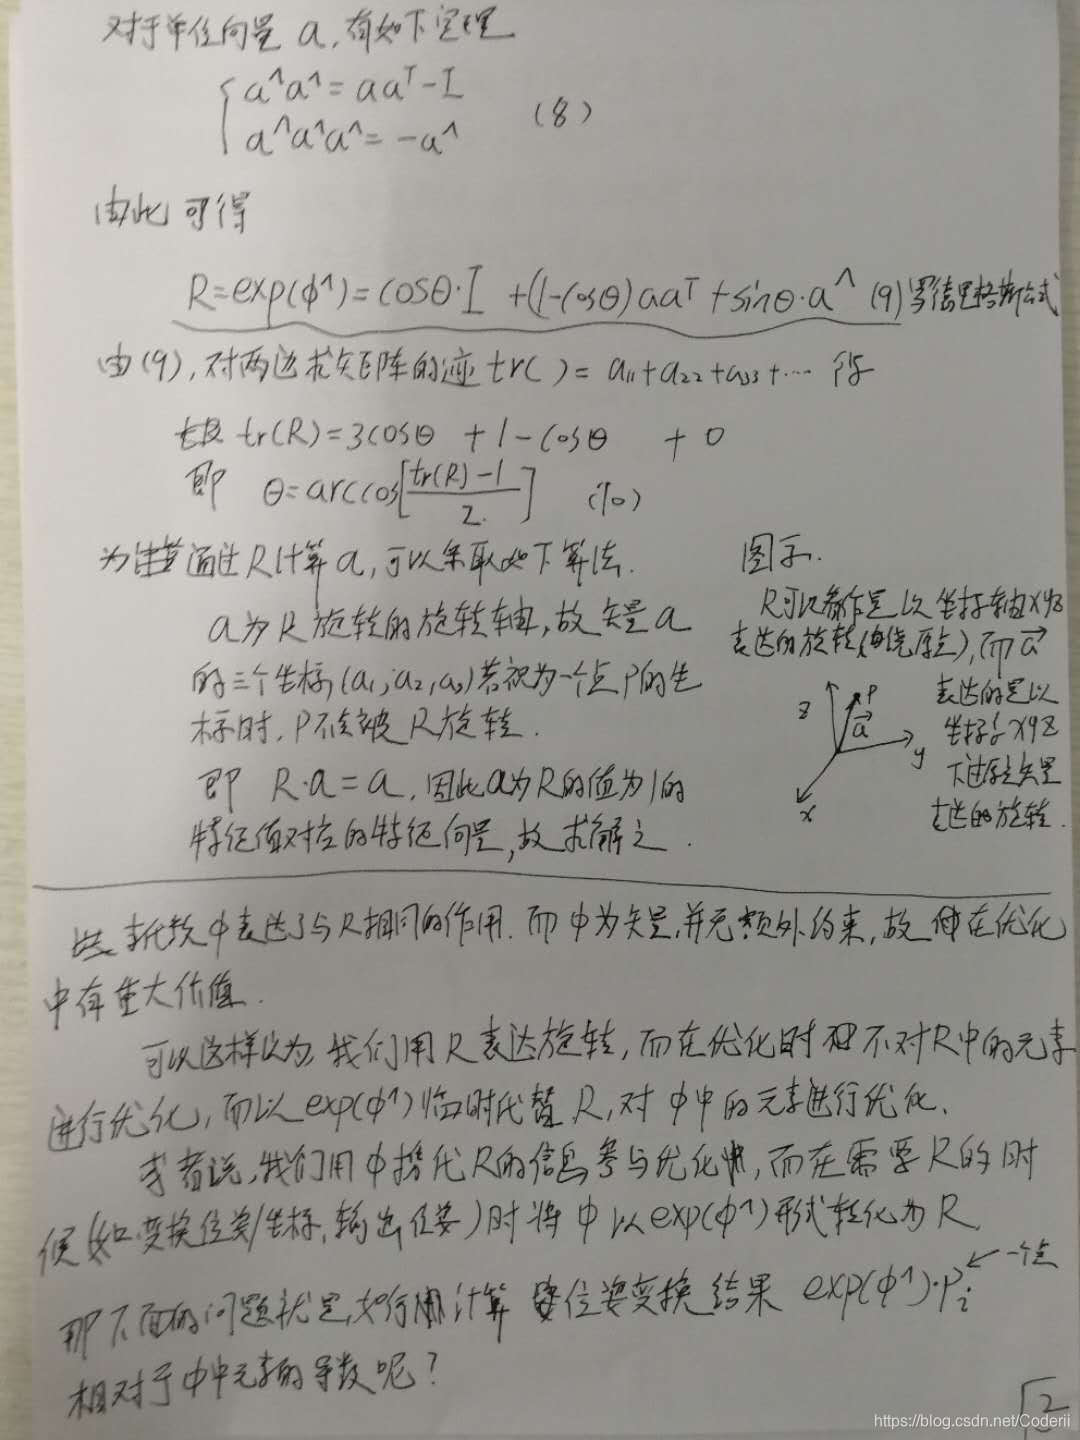 对于单位向量 a,有如下定理
a^a^ = aaᵀ-I
(8)
a^a^a^ = -a^
由此可得
R=exp(φ^)=cosθ·I +(1-cosθ)aaᵀ+sinθ·a^ (9) 罗德里格斯公式
由(9),对两边求矩阵的迹 tr( )= a₁₁+a₂₂+a₃₃+···
tr(R)=3cosθ +1-cosθ +0
即 θ=arccos[(tr(R)-1)/2] (10)
为 通过R计算a,可以采取如下算法.
a为R旋转的旋转轴,故矢量a
的三个坐标(a₁,a₂,a₃)若视为一个点P的坐
标时,P不会被R旋转.
即 R·a=a,因此a为R的值为1的
特征值对应的特征向量,故求解之.
图示.
R可以 是以坐标轴xyz
表达的旋转(由绕原点),而a⃗
表达的是以
坐标系xyz
下过原点矢量
表达的旋转.
z
P
a⃗
y
x
李代数φ表达了与R相同的作用.而φ为矢量,并无额外约束,故 在优化
中有重大价值.
可以这样认为,我们用R表达旋转,而在优化时 不对R中的元素
进行优化,而以exp(φ^)临时代替R,对φ中的元素进行优化.
或者说,我们用φ携代R的信息参与优化,而在需要R的时
候(如变换位姿/坐标,输出位姿)时将φ以exp(φ^)形式转化为R.
那下面的问题就是,如何 计算 位姿变换结果 exp(φ^)·Pᵢ ←一个点
相对于φ中元素的导数呢?
2
https://blog.csdn.net/Coderii